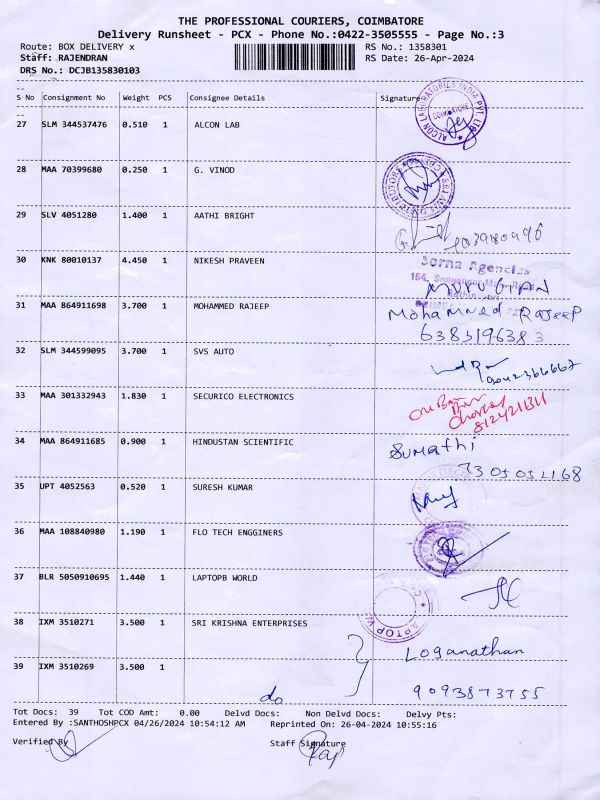 THE PROFESSIONAL COURIERS, COIMBATORE
Delivery Runsheet - PCX - Phone No.:0422-3505555 - Page No.:3
Route: BOX DELIVERY x RS No.: 1358301
Staff: RAJENDRAN RS Date: 26-Apr-2024
DRS No.: DCJB135830103
S No Consignment No Weight PCS Consignee Details Signature
ALCON LABORATORIES INDIA PVT. LTD.
COIMBATORE
27 SLM 344537476 0.510 1 ALCON LAB
28 MAA 70399680 0.250 1 G. VINOD
29 SLV 4051280 1.400 1 AATHI BRIGHT
30 KNK 80010137 4.450 1 NIKESH PRAVEEN
Sorna Agencies
MURUGAN
31 MAA 864911698 3.700 1 MOHAMMED RAJEEP
Mohammed Rajeep
6383196383
32 SLM 344599095 3.700 1 SVS AUTO
33 MAA 301332943 1.830 1 SECURICO ELECTRONICS
8124211311
34 MAA 864911685 0.900 1 HINDUSTAN SCIENTIFIC
Sumathi
35 UPT 4052563 0.520 1 SURESH KUMAR
36 MAA 108840980 1.190 1 FLO TECH ENGGINERS
37 BLR 5050910695 1.440 1 LAPTOPB WORLD
38 IXM 3510271 3.500 1 SRI KRISHNA ENTERPRISES
Loganathan
39 IXM 3510269 3.500 1
do
9093873755
Tot Docs: 39 Tot COD Amt: 0.00 Delvd Docs: Non Delvd Docs: Delvy Pts:
Entered By :SANTHOSHPCX 04/26/2024 10:54:12 AM Reprinted On: 26-04-2024 10:55:16
Verified By Staff Signature